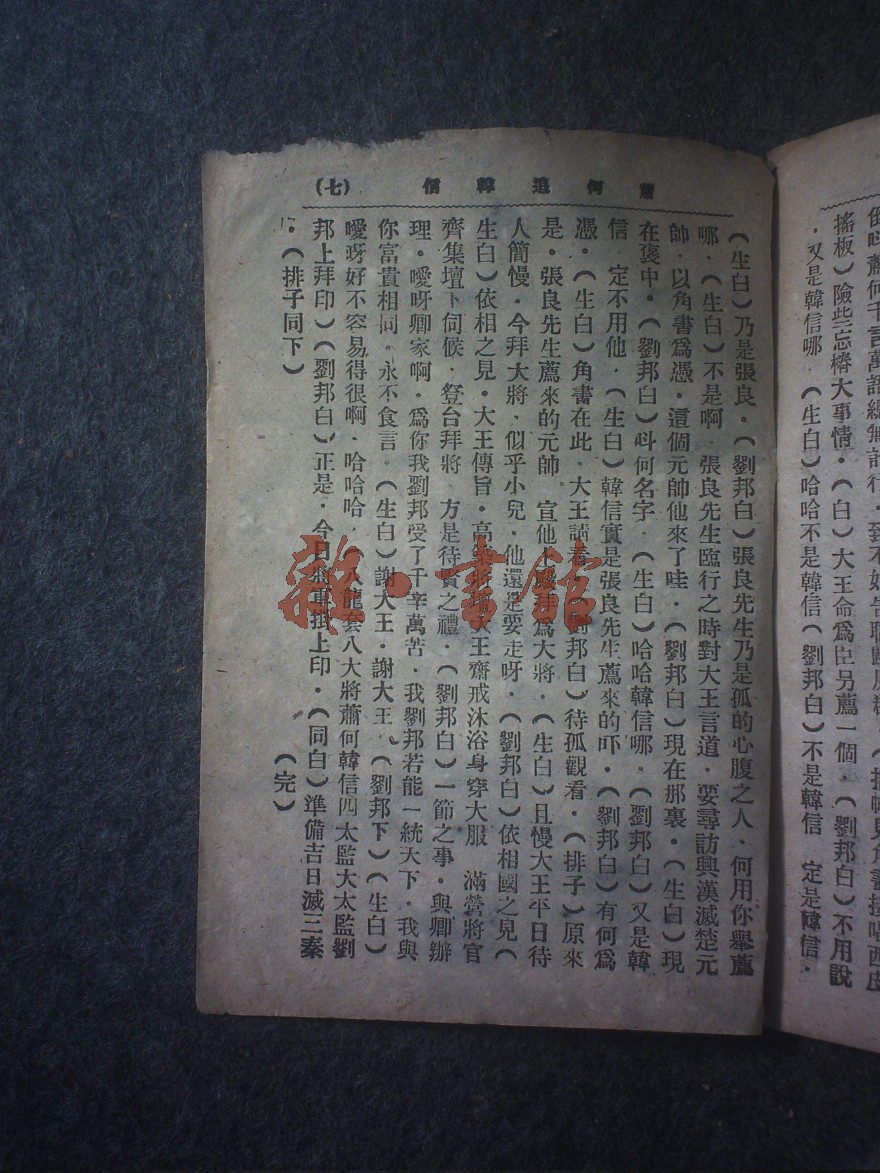 倒呀蕭何千言萬語總無計行．致不好告職歸
搖板）險些忘樁大事情．（白）大王命爲臣另薦一個．（劉邦白）不用說
．又是韓信哪．（生白）哈哈不是韓信（劉邦白）不是韓信　定是韓信．
蕭何追韓信　（七）
（生白）乃是張良．（劉邦白）張良先生乃是孤的心腹之人．何用你舉薦
哪．（生白）不是啊．張良先生臨行之時對大王言道．要尋訪興漢滅楚元
帥．以角書爲憑．這個元帥他來了哇．（劉邦白）現在那裏．（生白）現
在褒中．（劉邦白）叫何名字．（生白）哈哈韓信哪．（劉邦白）又是韓
信．定不用他．（生白）韓信實是張良先生薦來的吓．（劉邦白）有何爲
憑．（生白）角書在此．大王請看．（劉邦白）待孤觀看．（排子）原來
是．張良先生薦來的元帥　宣他上殿拜爲大將．（生白）且慢大王平日待
人簡慢．今拜大將．似乎小兒．他還是要走呀．（劉邦白）依相國之見（
生白）依相之見．大王傳旨．高築將壇大王齋戒沐浴身穿大服　滿營將官
齊集壇下伺候．登台拜將　方是待賢之禮．（劉邦白）一節之事．與卿辦
理．噯呀卿家啊．爲你我劉邦受了千辛萬苦．我劉邦若能一統大下．我與
你富貴相同．永不食言．（生白）謝大王．謝大王．（劉邦下）（生白）
噯呀好不容易得很啊．哈哈哈．（八龍套八大將蕭何韓信四太監大太監劉
邦上拜印）（劉邦白）正是．今日將軍掛上印．（同白）準備吉日滅三秦
．（排子同下）
（完）
雜·書館